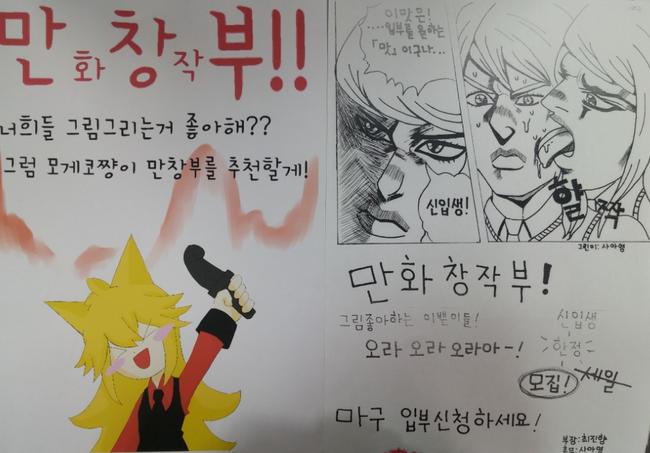 만화창작부!!
너희들 그림그리는거 좋아해??
그럼 모게코쨩이 만창부를 추천할게!
이맛은!
....입부를 원하는
「맛」이구나...
신입생!
할짝
그린이: 사아영
만화창작부!
그림좋아하는 이쁜이들!
오라 오라 오라아~!
신입생
한정
세일
모집!
마구 입부신청하세요!
부장: 최진향
홍보: 사아영